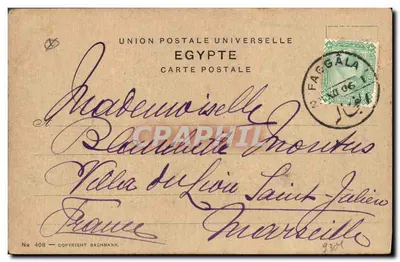 UNION POSTALE UNIVERSELLE
EGYPTE
CARTE POSTALE
FAGGALA
Mademoiselle
A
Blanche Montus
Villa du Lion Saint-Julien
France Marseille
CPARAMA
No 408 — COPYRIGHT BACHMANN.